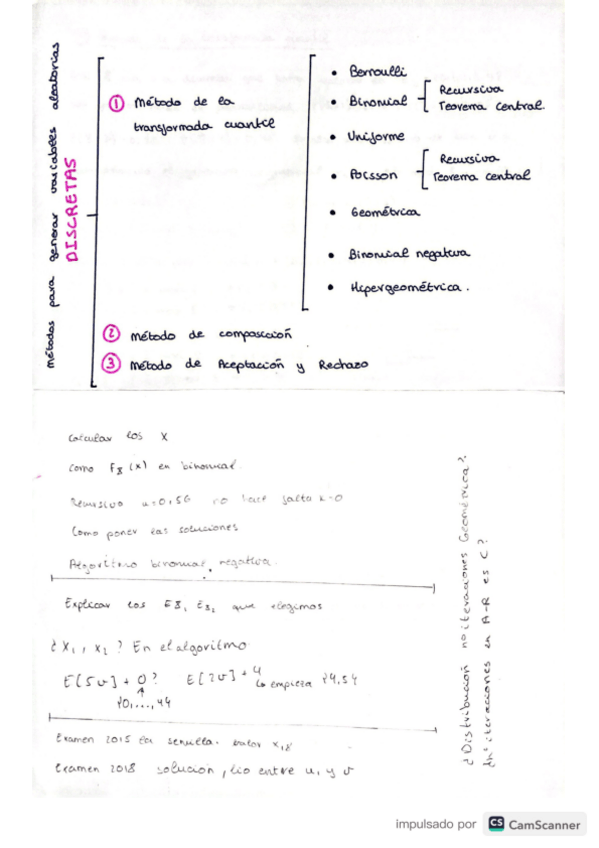 métodos para generar variables aleatorias
DISCRETAS
① Método de la
transformada cuantil
• Bernoulli
• Binomial
Recursiva
Teorema central.
• Uniforme
• Poisson
Recursiva
Teorema central
• Geométrica
• Binomial negativa
• Hipergeométrica.
② Método de composición
③ Método de Aceptación y Rechazo
Calcular los x
como (x) en binomial.
Recursivo u=0,56 no hace falta k=0
Como poner las soluciones
Algoritmo binomial negativa.
Explicar los que elegimos
¿X₁, X₂? En el algoritmo
E[5U] + 0? E[2U] + 4
↳ empieza
{0,...,4}
Examen 2015 la semilla. valor
Examen 2018 solución, lio entre u, y v
¿Distribución nº iteraciones Geométrica?
¿nº iteraciones en A-R es C?
impulsado por CS CamScanner